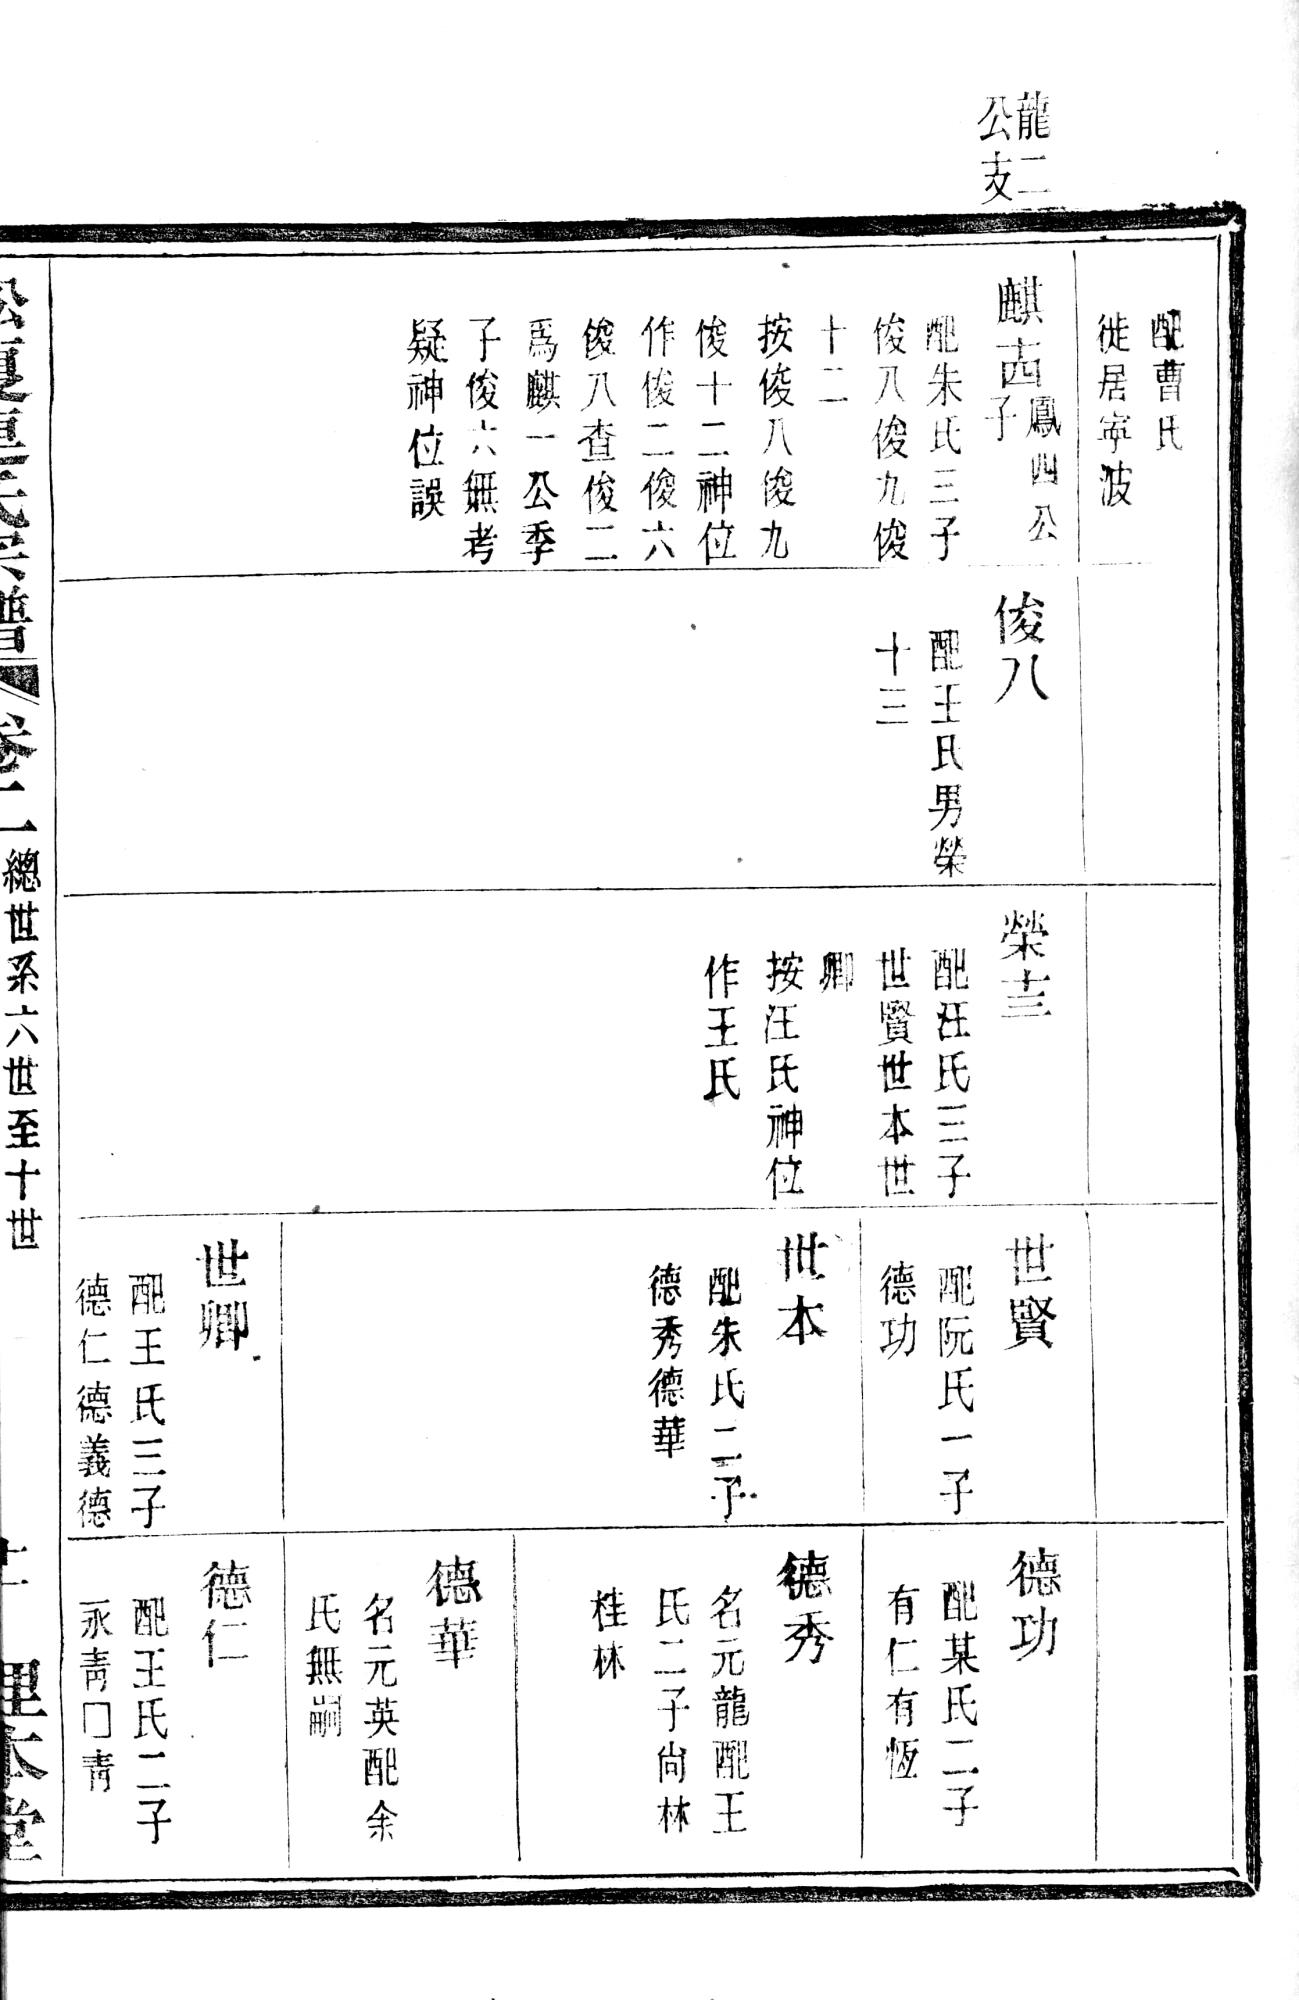 龍二
公支
配曹氏
徙居寧波
麒十四
鳳四公
子
配朱氏三子
俊八俊九俊
十二
按俊八俊九
俊十二神位
作俊二俊六
俊八查俊二
為麒一公季
子俊六無考
疑神位誤
俊八
配王氏男榮
十三
榮十三
配汪氏三子
世賢世本世
卿
按汪氏神位
作王氏
世賢
配阮氏一子
德功
世本
配朱氏二子
德秀德華
世卿
配王氏三子
德仁德義德
德功
配某氏二子
有仁有恆
德秀
名元龍配王
氏二子尙林
桂林
德華
名元英配余
氏無嗣
德仁
配王氏二子
永靑□靑
氏宗譜
卷二
總世系六世至十世
理本堂